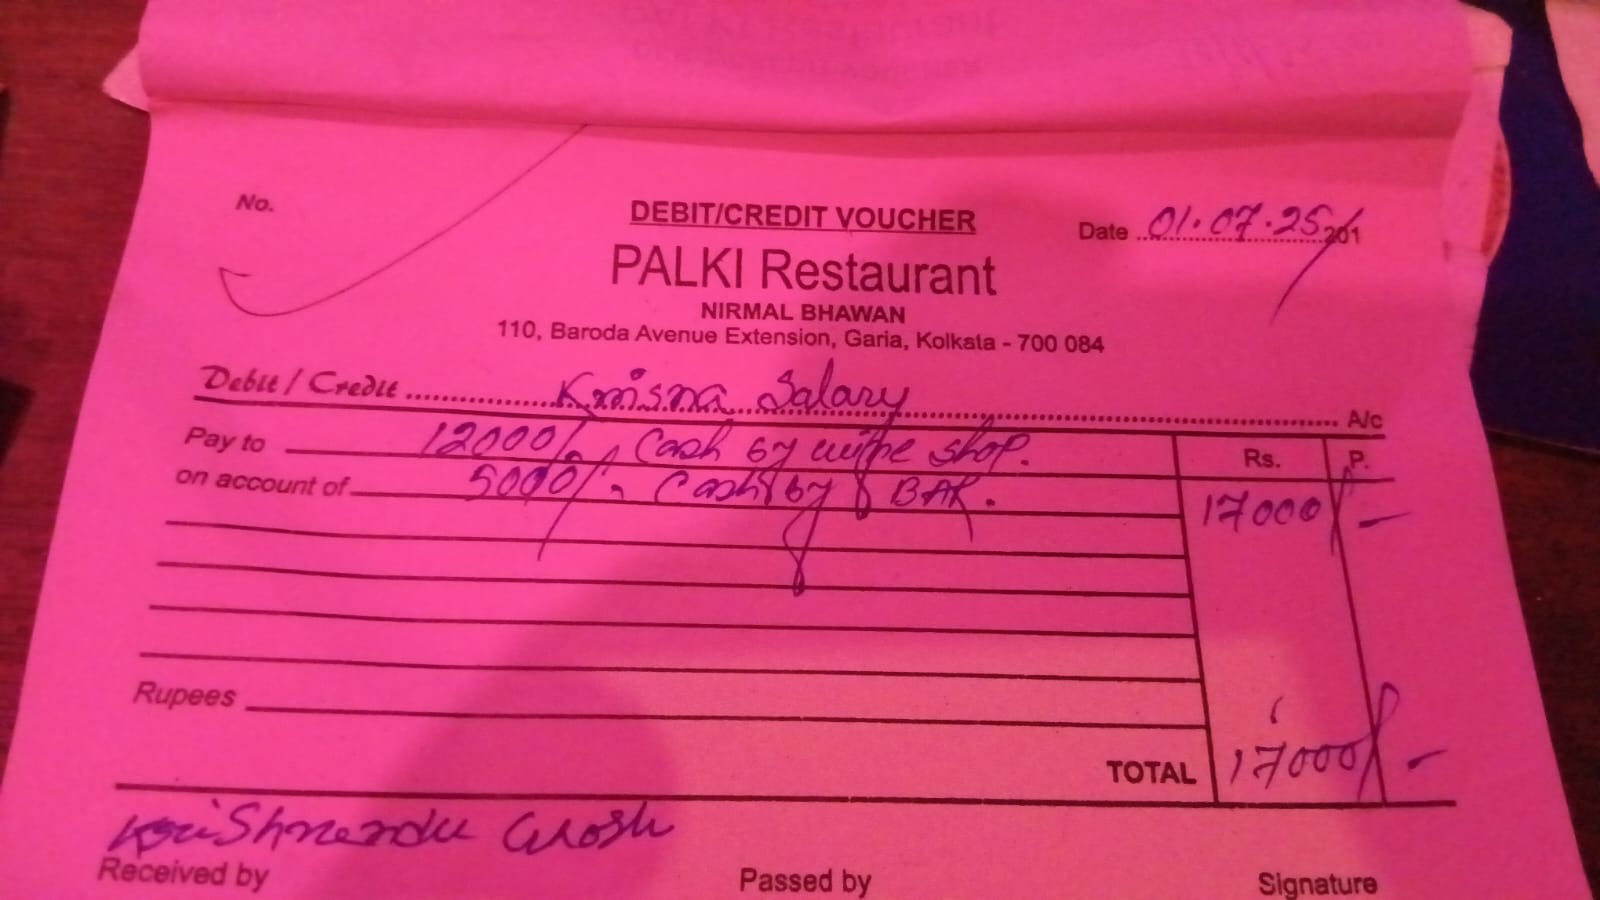 No.
DEBIT/CREDIT VOUCHER
Date 01.07.25/201
PALKI Restaurant
NIRMAL BHAWAN
110, Baroda Avenue Extension, Garia, Kolkata - 700 084
Debit / Credit Krisna Salary A/c
Pay to 12000/- Cash by shop.
Rs. P.
on account of 5000/- Cash by BAR.
17000/-
Rupees
TOTAL 17000/-
Krishnendu Ghosh
Received by Passed by Signature